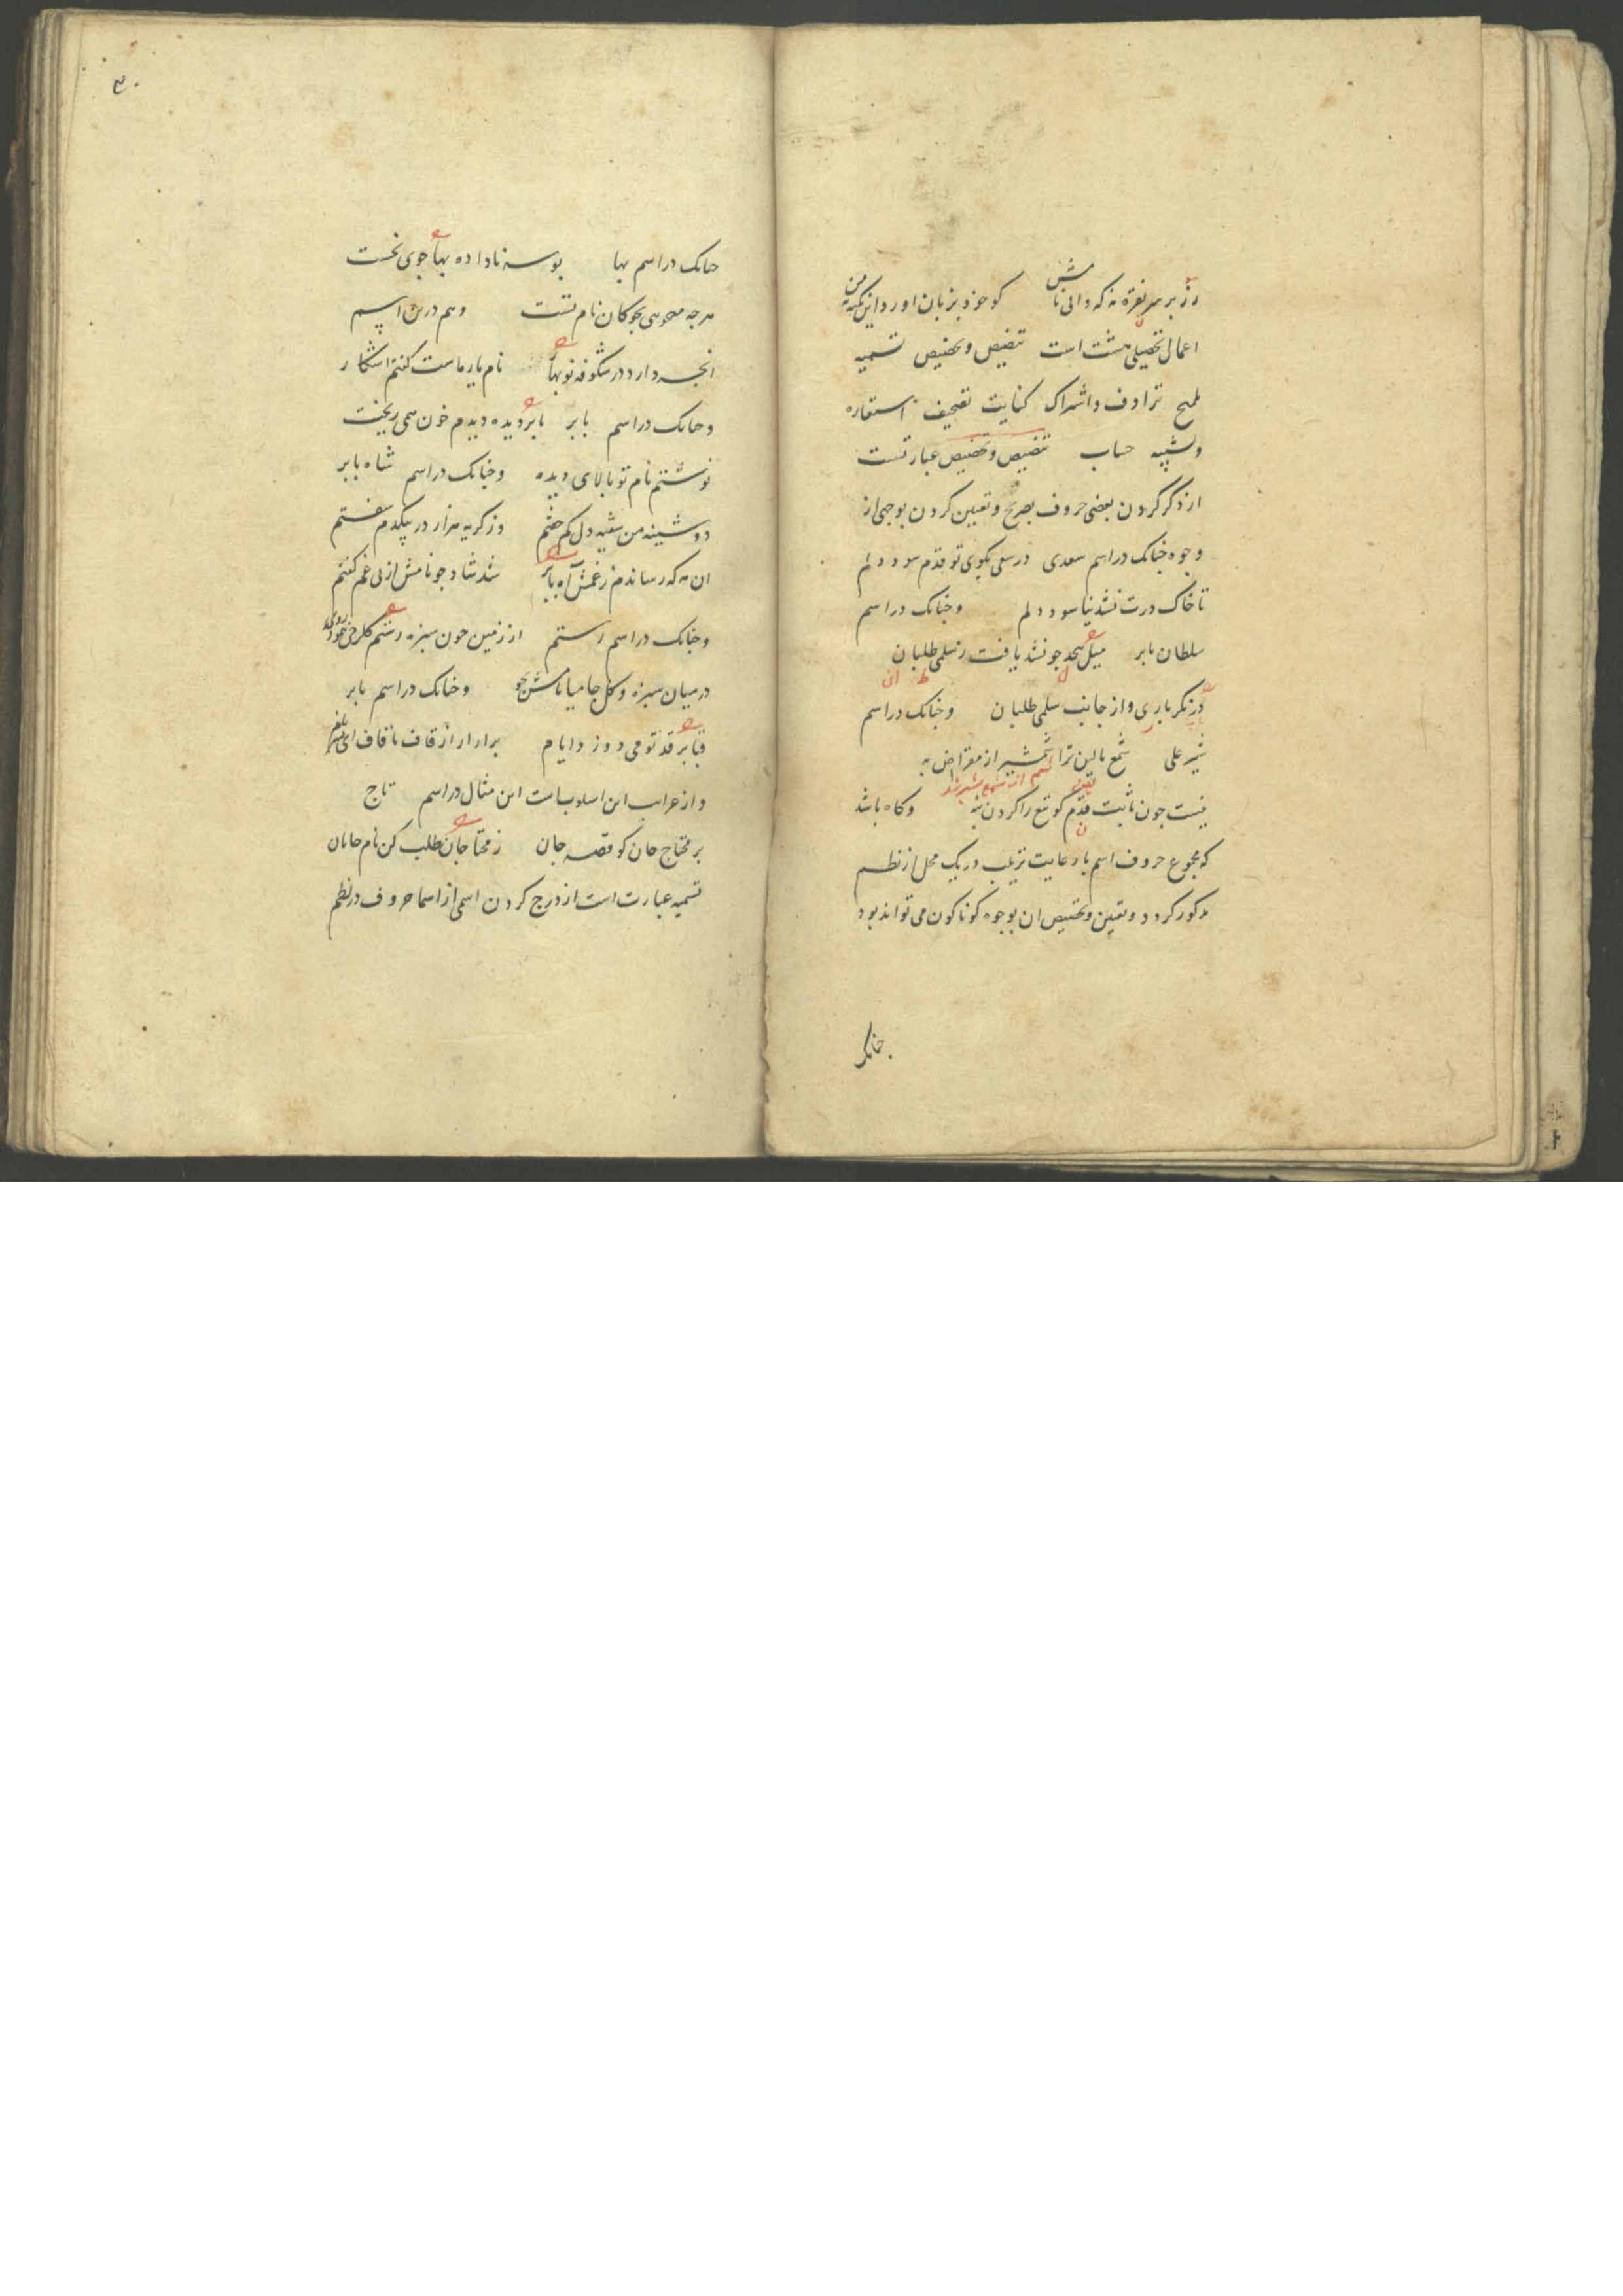 زر بر سر نقره نه که دانی نامش کو خود بزبان اورد این نکته من
اعمال تحصیلی هشت است تنصیص و تخصیص تسمیه
تلمیح ترادف و اشتراک کنایت تصحیف استعاره
و تشبیه حساب تنصیص و تخصیص عبارتست
از ذکر کردن بعضی حروف بصریح و تعیین کردن بوجهی از
وجوه چنانک در اسم سعدی در سعی بکوی تو قدم سود دلم
تا خاک درت نشد نیاسود دلم وچنانک در اسم
سلطان بابر میل بیحد جو نشد یافت ز سلمی طلبان
ل ط ان
در نکر باری و از جانب سلمی طلبان وچنانک در اسم
شیر علی شمع بالین ترا شمشیر از مقراض به
نیست جون ثابت قدم کو تیغ را کردن بنه وکاه باشد
که مجموع حروف اسم با رعایت ترتیب در یک محل از نظم
مذکور کردد و تعیین و تخصیص ان بوجوه کوناکون می تواند بود
چنانک
۳۰
چنانک در اسم بها بوسه ناداده بها جوی نخست
هرجه میجویی بجو کان نام تست وهم درین اسم
انجه دارد در شکوفه نوبهار نام یار ماست کفتم اشکار
وچنانک در اسم بابر بابر دیده دیدم خون همی ریخت
نوشتم نام تو بالای دیده وچنانک در اسم شاه بابر
دوشینه من شیفته دل کم خفتم وز کریه هزار در بیکدم سفتم
ان مه که رساندم ز غمش آه بابر شد شاد جو نامش از پی غم کفتم
وچنانک در اسم رستم از زمین جون سبزه رستم کلرخی بنمود روی
در میان سبزه و کل جامیا نامش بجو وچنانک در اسم بابر
قبا بر قد تو می دوزد ایام برار از قاف تا قاف ای پسر نام
و از غرایب این اسلوبست این مثال در اسم تاج
بر محتاج جان کو قصه جان ز محتاجان طلب کن نام جانان
تسمیه عبارت است از درج کردن اسمی از اسما حروف در نظم